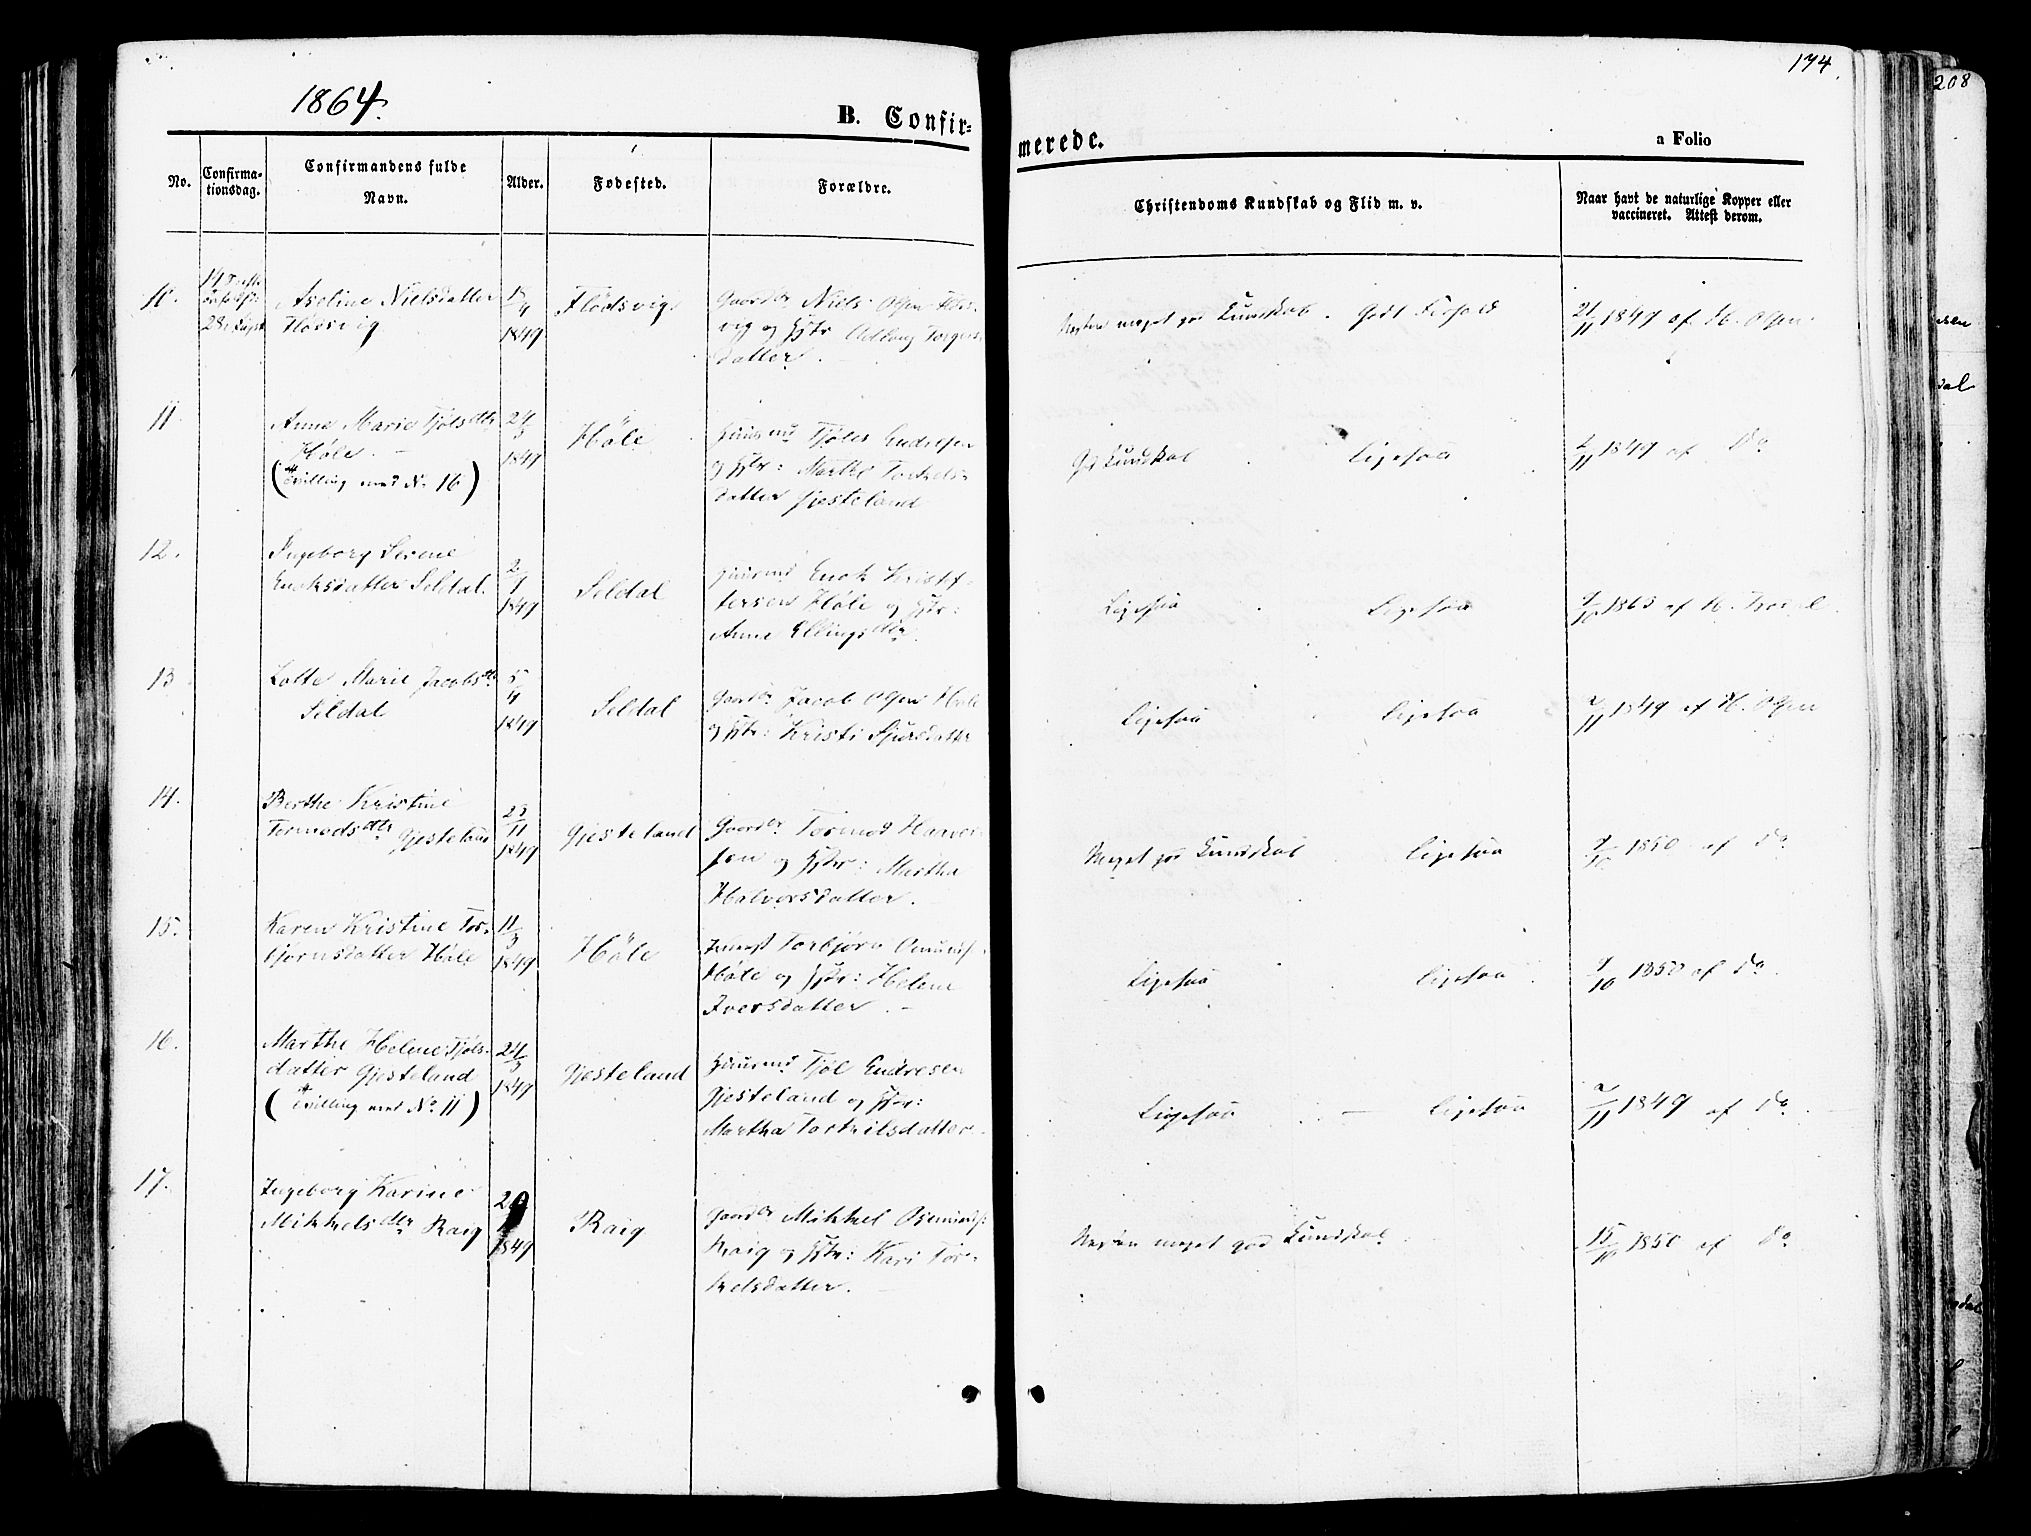 1864.
B. Confir-
merede.
174.
a Folio
208
No.
Confirma-
tionsdag.
Confirmandens fulde
Navn.
Alder.
Fødested.
Forældre.
Christendoms Kundskab og Flid m. v.
Naar havt de naturlige Kopper eller
vaccineret. Attest derom.
10.
Aseline Nielsdatter
Flödsvig
1849
Flödsvig
Gaardbr Niels Olsen Flös-
vig og Hstr Torgers-
datter.
Nesten meget god Kundskab. Godt Forhold
21/11 1849 af H. Olsen.
11
Anne Marie Tjölsdtr
Höle.
(Tvilling med No 16)
24/3
1849
Höle
Huusmd Tjöles Endresen
og Hstr: Marthe Torkels-
datter Gjesteland
God Kundskab Ligesaa
2/11 1849 af Do
12.
Ingeborg Serene
Enoksdatter Seldal.
2/
1849
Seldal
Huusmd Enok Kristof-
fersen Höle og Hstr:
Anne Ellingsdtr.
Ligesaa Ligesaa
1863 af H.
13
Lotte Marie Jacobsdtr
Seldal
5/4
1849
Seldal
Gaardbr Jacob Olsen Höle
og Hstr: Kristi Sjursdatter
Ligesaa Ligesaa
2/11 1849 af H. Olsen
14.
Berthe Kristine
Tormodsdtr Gjesteland
23/11
1849
Gjesteland
Gaardbr Tormod Haavor-
sen og Hstr: Martha
Halvorsdatter.
Meget god Kundskab Ligesaa
9/10 1850 af Do
15.
Karen Kristine Tor-
björnsdatter Höle
11/3
1849
Höle
Torbjörn
Höle og Hstr: Helene
Iversdatter.
Ligesaa Ligesaa
9/10 1850 af Do
16.
Marthe Helene Tjöls-
datter Gjesteland
(Tvilling med No 11)
24/3
1849
Gjesteland
Huusmd Tjöl Endresen
Gjesteland og Hstr:
Martha Torkelsdatter.
Ligesaa — Ligesaa
2/11 1849 af Do
17.
Ingeborg Karine
Mikkelsdtr Raig
1849
Raig
Gaardbr Mikkel Osmunds:
Raig og Hstr: Kari Tor-
kelsdatter.
Nesten meget god Kundskab
15/10 1850 af Do